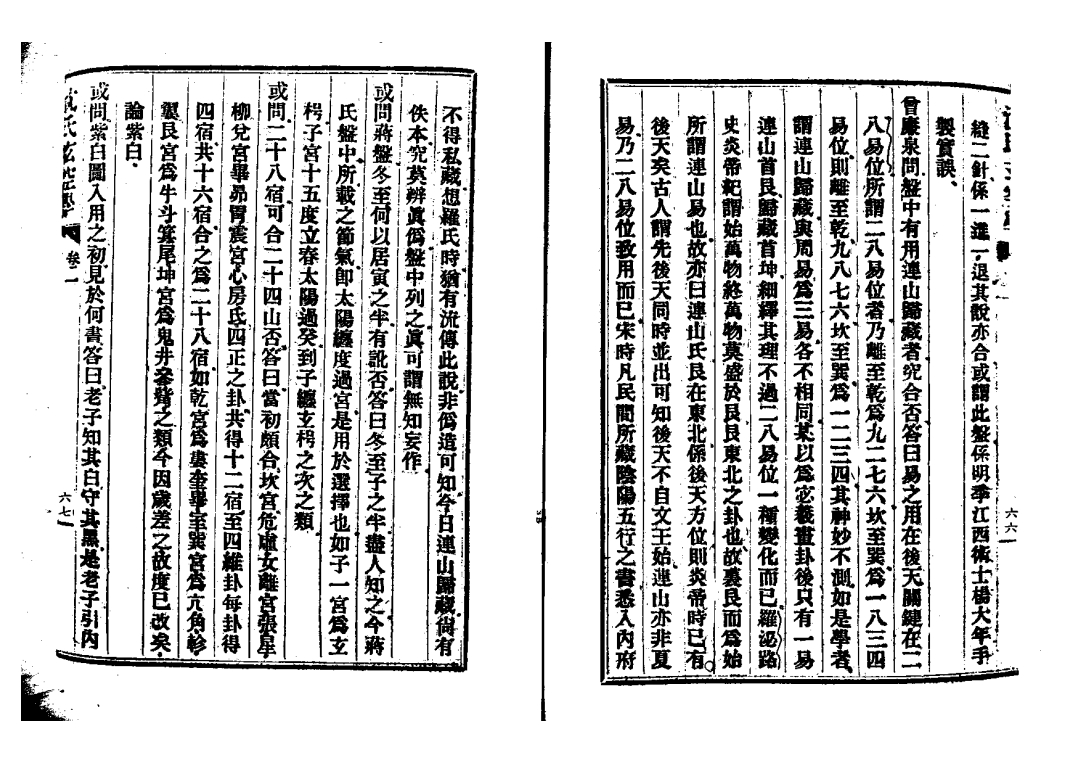 縫二針係一進一退其說亦合或謂此盤係明季江西術士楊大年手
製實誤、
曾廉泉問盤中有用連山歸藏者究合否答曰易之用在後天關鍵在二
八易位所謂二八易位者乃離至乾為九二七六坎至巽為一八三四
易位則離至乾九八七六坎至巽為一二三四其神妙不測如是學者
謂連山歸藏與周易為三易各不相同某以為宓羲畫卦後只有一易
連山首艮歸藏首坤細繹其理不過二八易位一種變化而已羅泌路
史炎帝紀謂始萬物終萬物莫盛於艮艮東北之卦也故裏艮而為始
所謂連山易也故亦曰連山氏艮在東北係後天方位則炎帝時已有
後天矣古人謂先後天同時並出可知後天不自文王始連山亦非夏
易乃二八易位致用而已宋時凡民間所藏陰陽五行之書悉入內府
六六
不得私藏想羅氏時猶有流傳此說非偽造可知今日連山歸藏尚有
佚本究莫辨眞偽盤中列之眞可謂無知妄作
或問蔣盤冬至何以居寅之半有訛否答曰冬至子之半盡人知之今蔣
氏盤中所載之節氣卽太陽纏度過宮是用於選擇也如子一宮為玄
枵子宮十五度立春太陽過癸到子纏玄枵之次之類
或問二十八宿可合二十四山否答曰當初頗合坎宮危虛女離宮張星
柳兌宮畢昴胃震宮心房氐四正之卦共得十二宿至四維卦每卦得
四宿共十六宿合之為二十八宿如乾宮為婁奎畢室巽宮為亢角軫
翼艮宮為牛斗箕尾坤宮為鬼井參觜之類今因歲差之故度已改矣、
論紫白、
或問紫白圖入用之初見於何書答曰老子知其白守其黑是老子引內
氏玄空學 卷二
六七